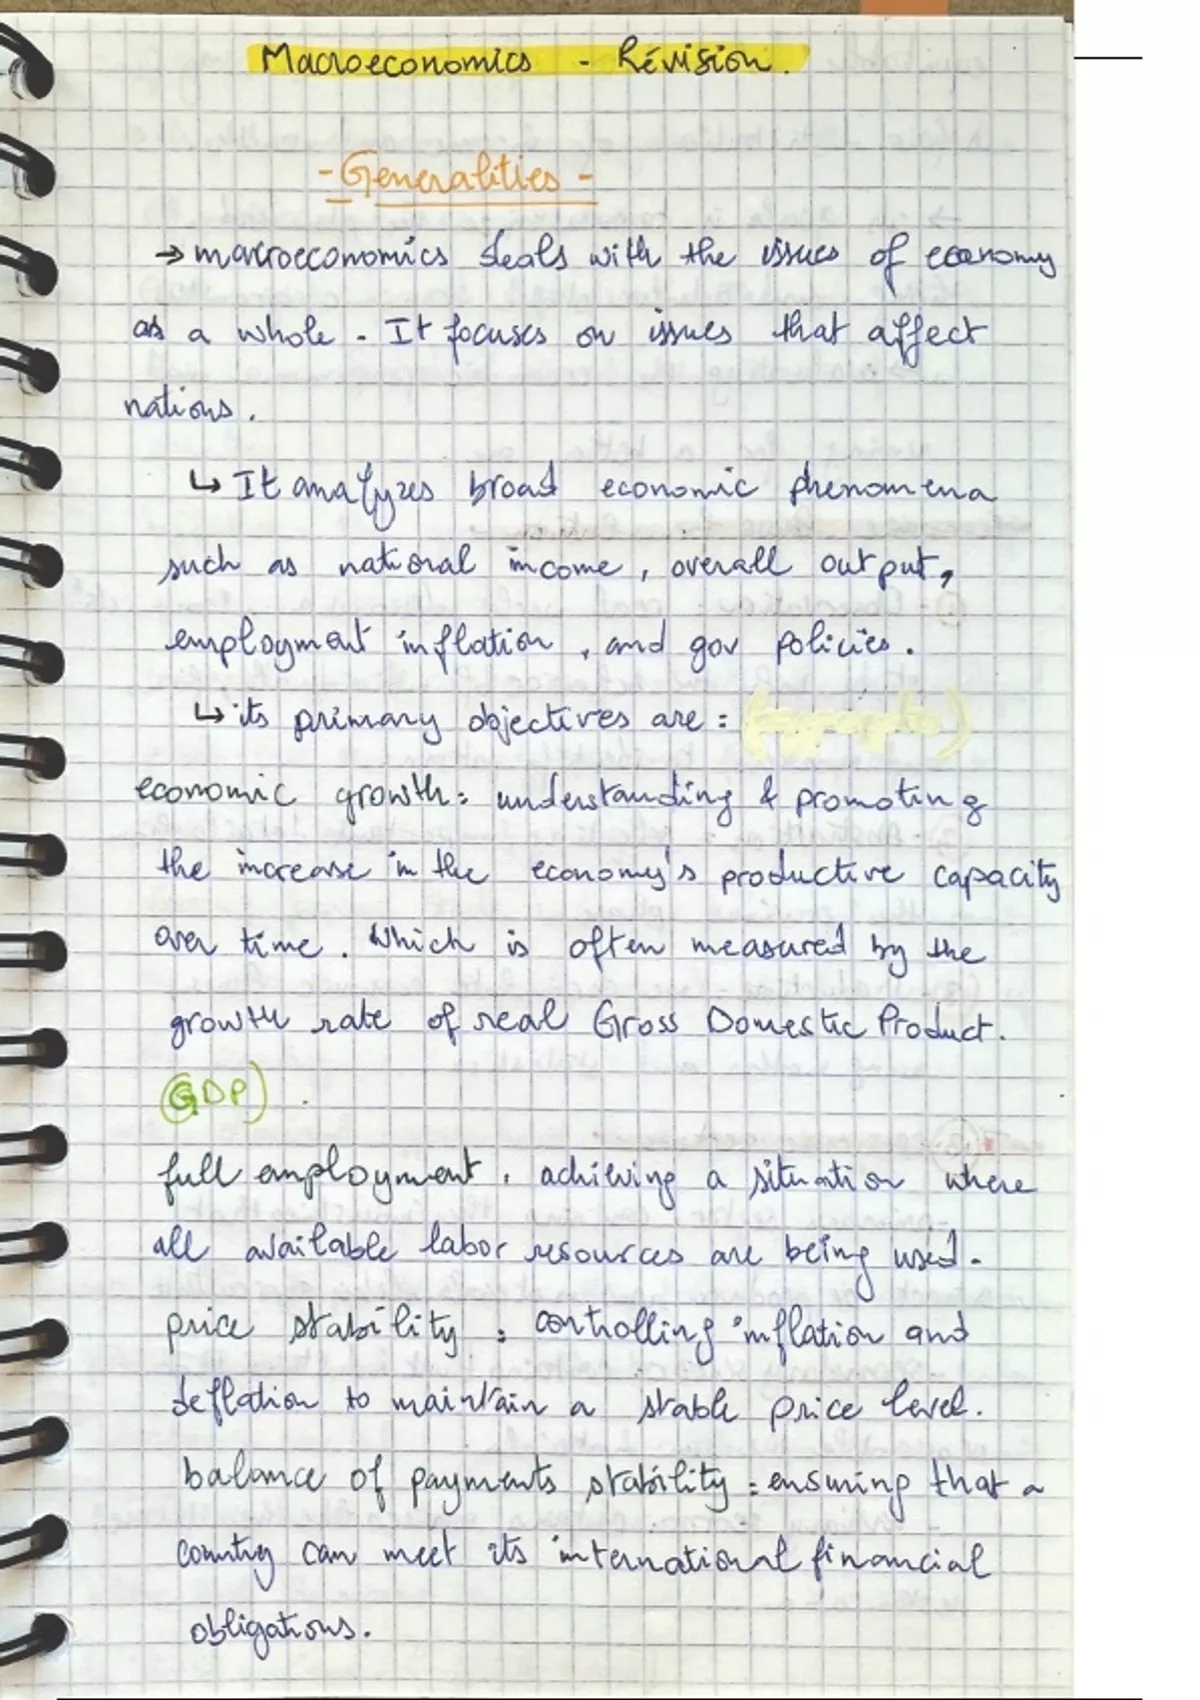 Macroeconomics - Révision.
- Generalities -
→ macroeconomics deals with the issues of economy
as a whole. It focuses on issues that affect
nations.
↳ It analyzes broad economic phenomena
such as national income, overall output,
employment inflation, and gov policies.
↳ its primary objectives are:
economic growth: understanding & promoting
the increase in the economy's productive capacity
over time. Which is often measured by the
growth rate of real Gross Domestic Product.
(GDP)
full employment. achieving a situation where
all available labor resources are being used.
price stability: controlling inflation and
deflation to maintain a stable price level.
balance of payments stability: ensuring that a
country can meet its international financial
obligations.